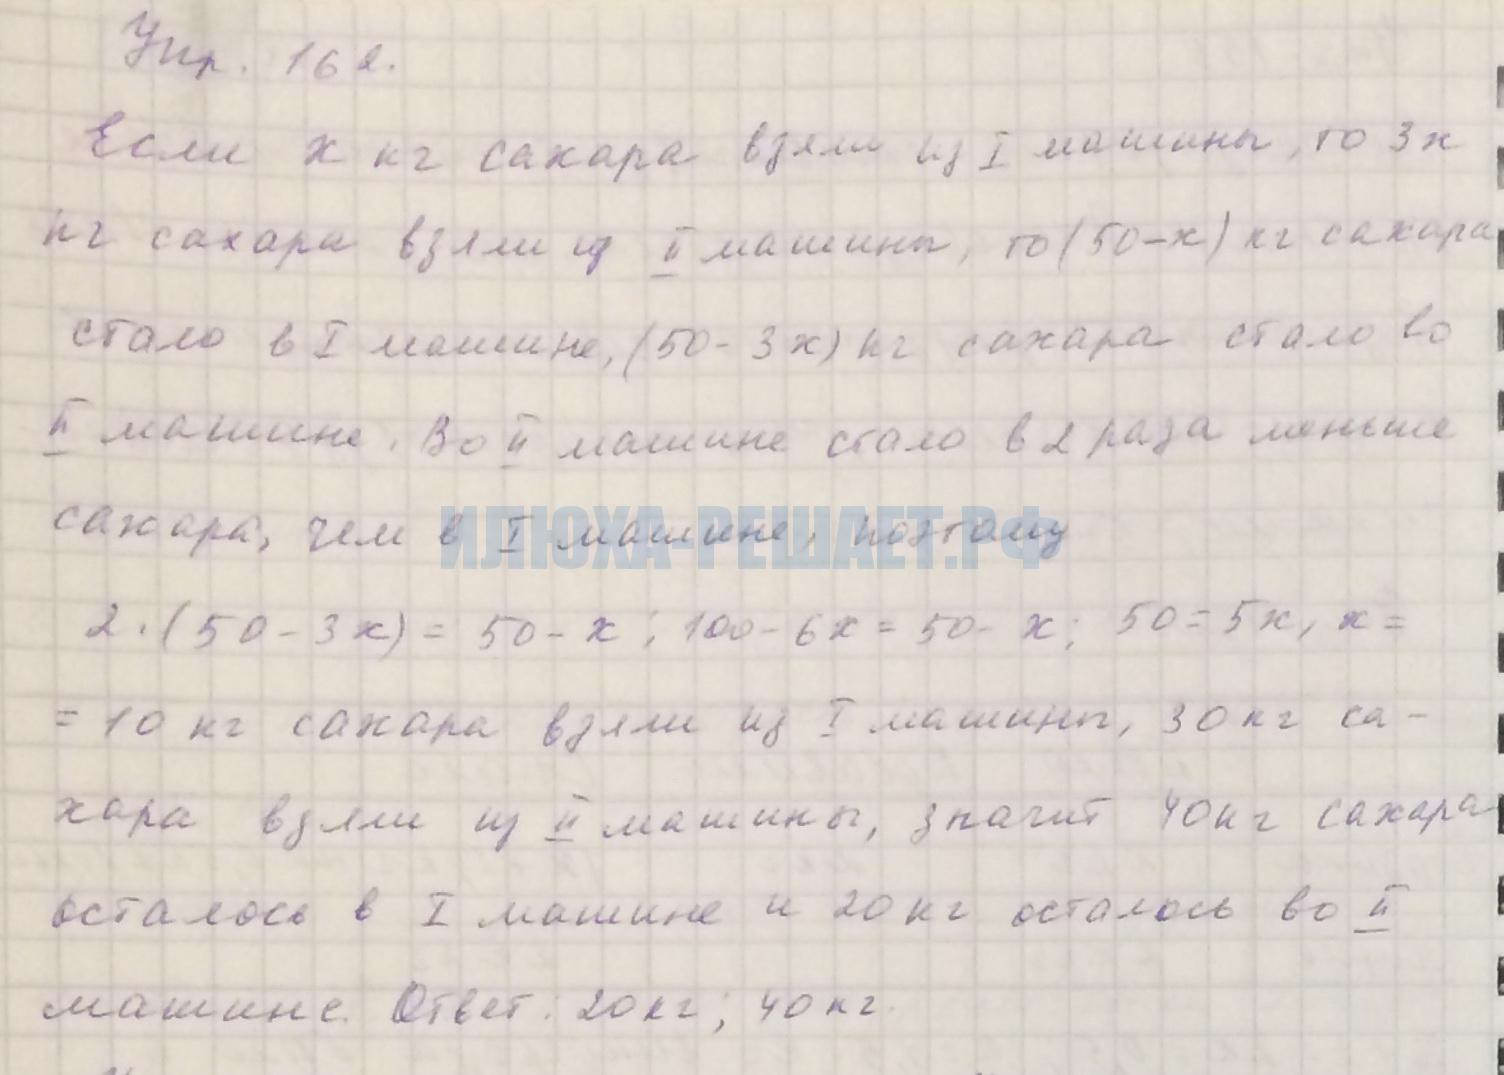 Упр. 162.
Если x кг сахара взяли из I машины, то 3x
кг сахара взяли из II машины, то (50-x) кг сахара
стало в I машине, (50-3x) кг сахара стало во
II машине. Во II машине стало в 2 раза меньше
сахара, чем в I машине, поэтому
ИЛЮХА-РЕШАЕТ.РФ
2·(50-3x)=50-x; 100-6x=50-x; 50=5x, x=
=10 кг сахара взяли из I машины, 30 кг са-
хара взяли из II машины, значит 40 кг сахара
осталось в I машине и 20 кг осталось во II
машине. Ответ: 20 кг; 40 кг.